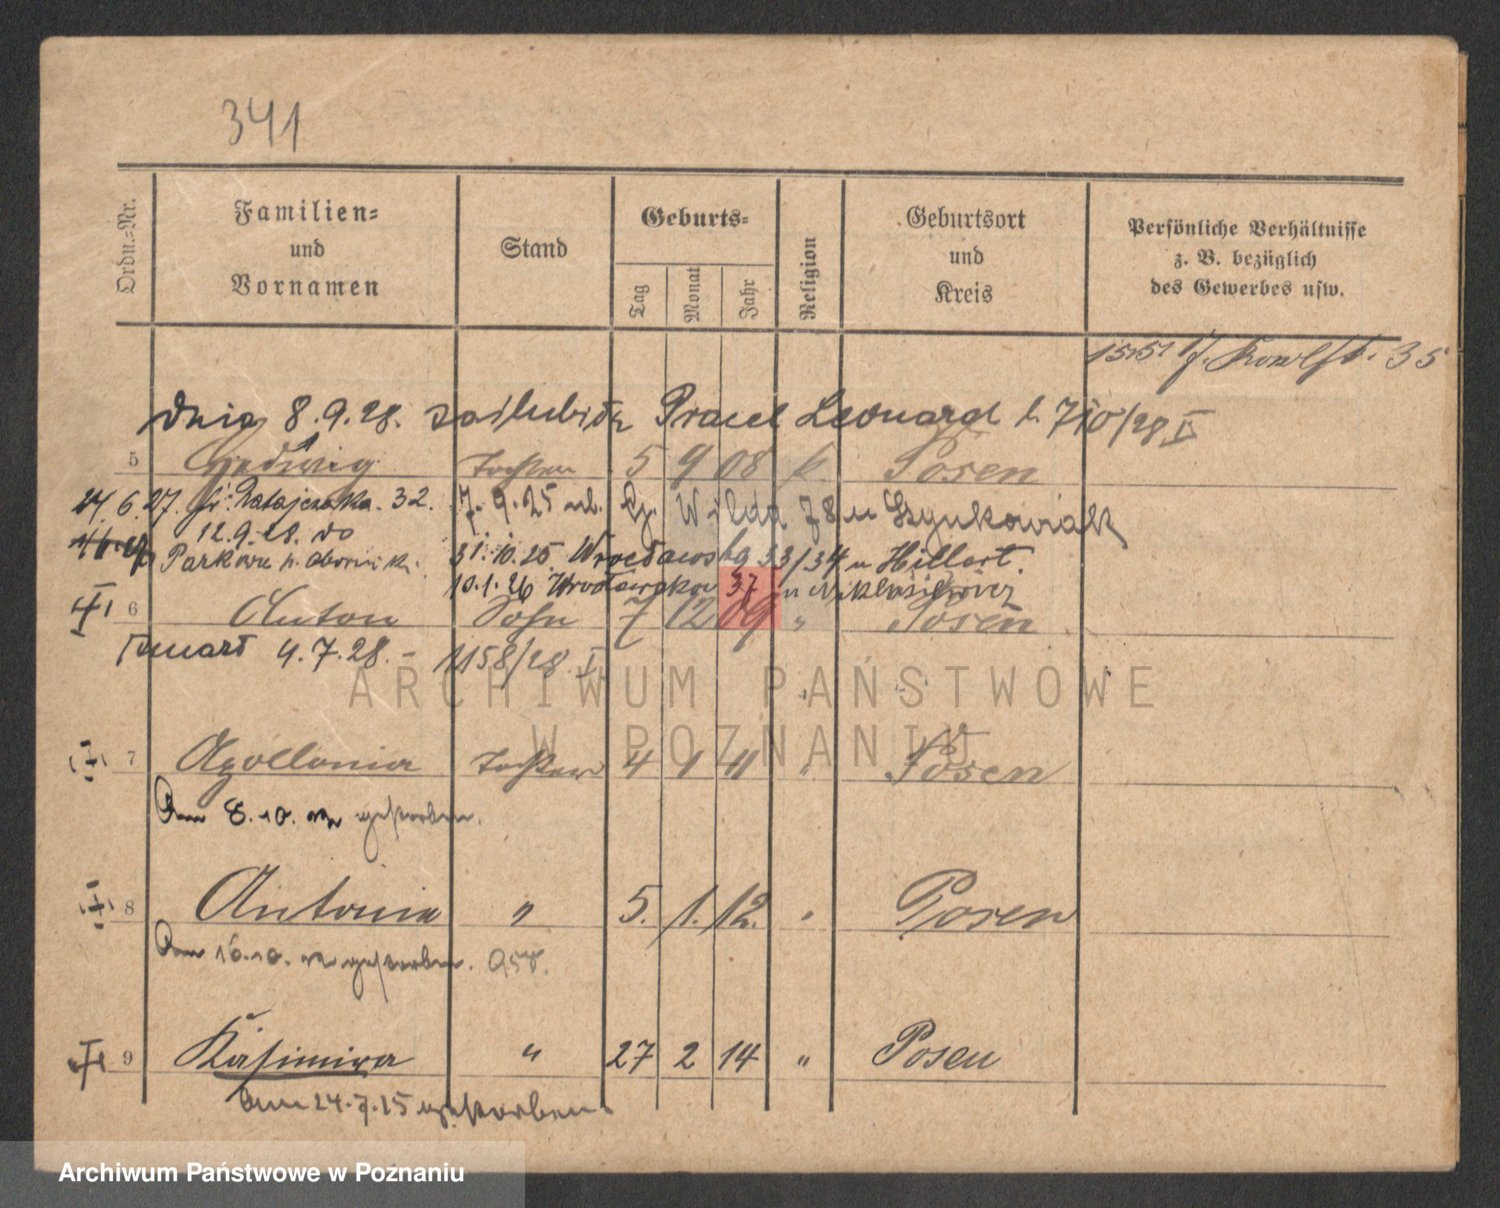 341
Ordn.-Nr.
Familien-
und
Vornamen
Stand
Geburts-
Tag
Monat
Jahr
Religion
Geburtsort
und
Kreis
Persönliche Verhältnisse
z. B. bezüglich
des Gewerbes usw.
35
dnia 8.9.28. Leonard 710/28 I
5 Hedwig Tochter 5 9 08 k. Posen
24.6.27. Ratajczaka. 32. 7.9.25 Wilda 78 u Szynkowiak
12.9.28. do
Parkowo p. Obornik. 31.10.25. Wrocławska 33/34 u Hillert.
10.1.26 Wrocławska 37 u
6 Anton Sohn 7 12 09 " Posen
zmarł 4.7.28. - 1158/28 I
ARCHIWUM PAŃSTWOWE
W POZNANIU
7 Apollonia Tochter 4 1 11 " Posen
Am 8.10. gestorben.
8 Antonia " 5. 1. 12. " Posen
Am 16.10. gestorben.
9 Kasimira " 27 2 14 " Posen
am 24.7.15 gestorben.
Archiwum Państwowe w Poznaniu